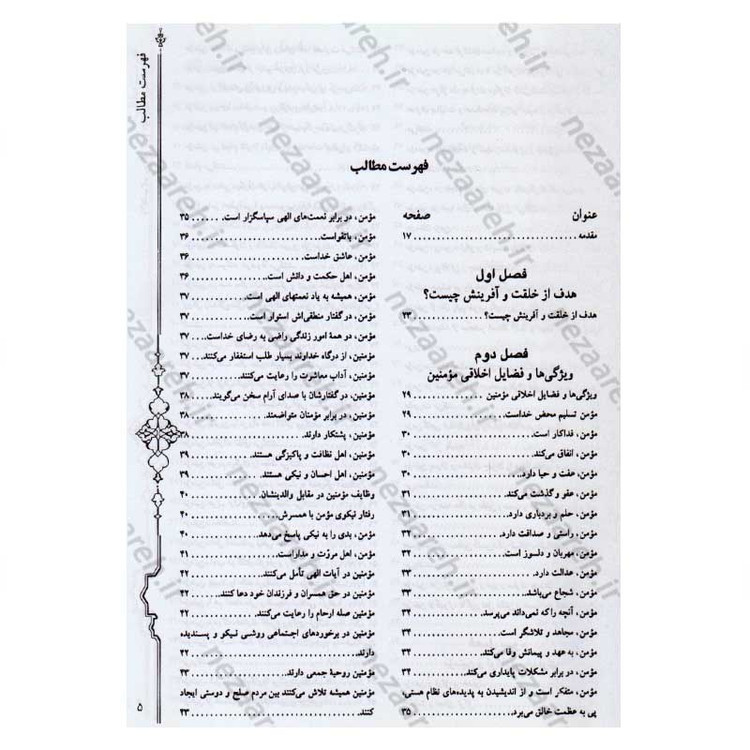 فهرست مطالب
فهرست مطالب
عنوان صفحه
مقدمه ۱۷
فصل اول
هدف از خلقت و آفرینش چیست؟
هدف از خلقت و آفرینش چیست؟ ۲۳
فصل دوم
ویژگی‌ها و فضایل اخلاقی مؤمنین
ویژگی‌ها و فضایل اخلاقی مؤمنین ۲۹
مؤمن تسلیم محض خداست ۲۹
مؤمن، فداکار است ۳۰
مؤمن، انفاق می‌کند ۳۰
مؤمن، عفت و حیا دارد ۳۰
مؤمن، عفو و گذشت می‌کند ۳۱
مؤمن، حلم و بردباری دارد ۳۱
مؤمن، راستی و صداقت دارد ۳۲
مؤمن، مهربان و دلسوز است ۳۲
مؤمن، عدالت دارد ۳۳
مؤمن، شجاع می‌باشد ۳۳
مؤمن، آنچه را که نمی‌داند می‌پرسد ۳۴
مؤمن، مجاهد و تلاشگر است ۳۴
مؤمن، به عهد و پیمانش وفا می‌کند ۳۴
مؤمن، در برابر مشکلات پایداری می‌کند ۳۴
مؤمن، متفکر است و از اندیشیدن به پدیده‌های نظام هستی،
پی به عظمت خالق می‌برد ۳۵
مؤمن، در برابر نعمت‌های الهی سپاسگزار است ۳۵
مؤمن، باتقواست ۳۶
مؤمن، عاشق خداست ۳۶
مؤمن، اهل حکمت و دانش است ۳۶
مؤمن، همیشه به یاد نعمتهای الهی است ۳۷
مؤمن، در گفتار منطقی‌اش استوار است ۳۷
مؤمن، در همهٔ امور زندگی راضی به رضای خداست ۳۷
مؤمنین، از درگاه خداوند بسیار طلب استغفار می‌کنند ۳۷
مؤمنین، آداب معاشرت را رعایت می‌کنند ۳۷
مؤمنین، در گفتارشان با صدای آرام سخن می‌گویند ۳۸
مؤمنین، در برابر مؤمنان متواضعند ۳۸
مؤمنین، پشتکار دارند ۳۸
مؤمنین، اهل نظافت و پاکیزگی هستند ۳۹
مؤمنین، اهل احسان و نیکی هستند ۳۹
وظایف مؤمنین در مقابل والدینشان ۴۰
رفتار نیکوی مؤمن با همسرش ۴۰
مؤمن، بدی را به نیکی پاسخ می‌دهد ۴۰
مؤمنین، اهل مروّت و مداراست ۴۱
مؤمنین در آیات الهی تأمل می‌کنند ۴۲
مؤمنین در حق همسران و فرزندان خود دعا کنند ۴۲
مؤمنین صله ارحام را رعایت می‌کنند ۴۲
مؤمنین در برخوردهای اجتماعی روشی نیکو و پسندیده
دارند ۴۲
مؤمنین روحیهٔ جمعی دارند ۴۳
مؤمنین همیشه تلاش می‌کنند بین مردم صلح و دوستی ایجاد
کنند ۴۳
۵
nezaareh.ir